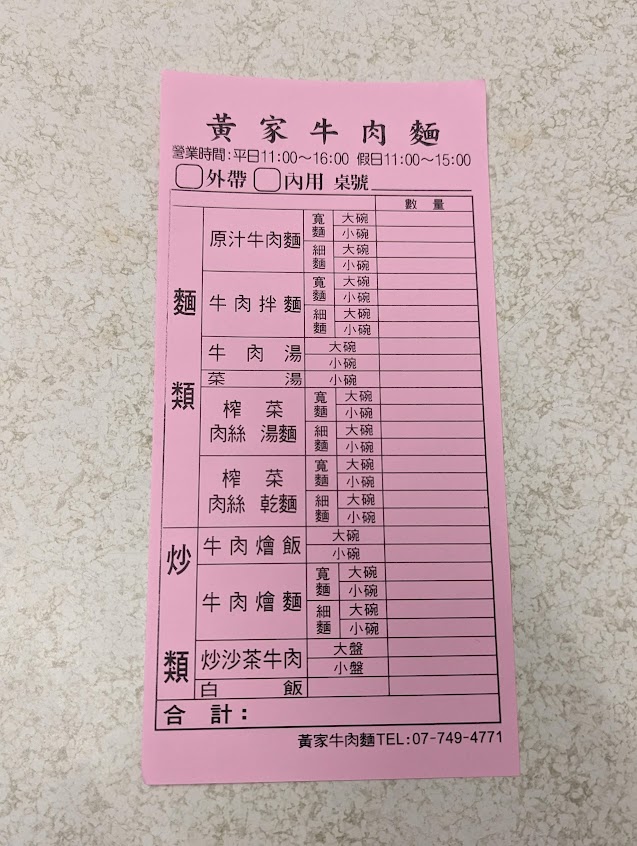 黃家牛肉麵
營業時間:平日11:00～16:00 假日11:00～15:00
外帶 內用 桌號
數量
麵類
原汁牛肉麵 寬麵 大碗
小碗
細麵 大碗
小碗
牛肉拌麵 寬麵 大碗
小碗
細麵 大碗
小碗
牛肉湯 大碗
小碗
菜湯 小碗
榨菜肉絲湯麵 寬麵 大碗
小碗
細麵 大碗
小碗
榨菜肉絲乾麵 寬麵 大碗
小碗
細麵 大碗
小碗
炒類
牛肉燴飯 大碗
小碗
牛肉燴麵 寬麵 大碗
小碗
細麵 大碗
小碗
炒沙茶牛肉 大盤
小盤
白飯
合計:
黃家牛肉麵TEL:07-749-4771